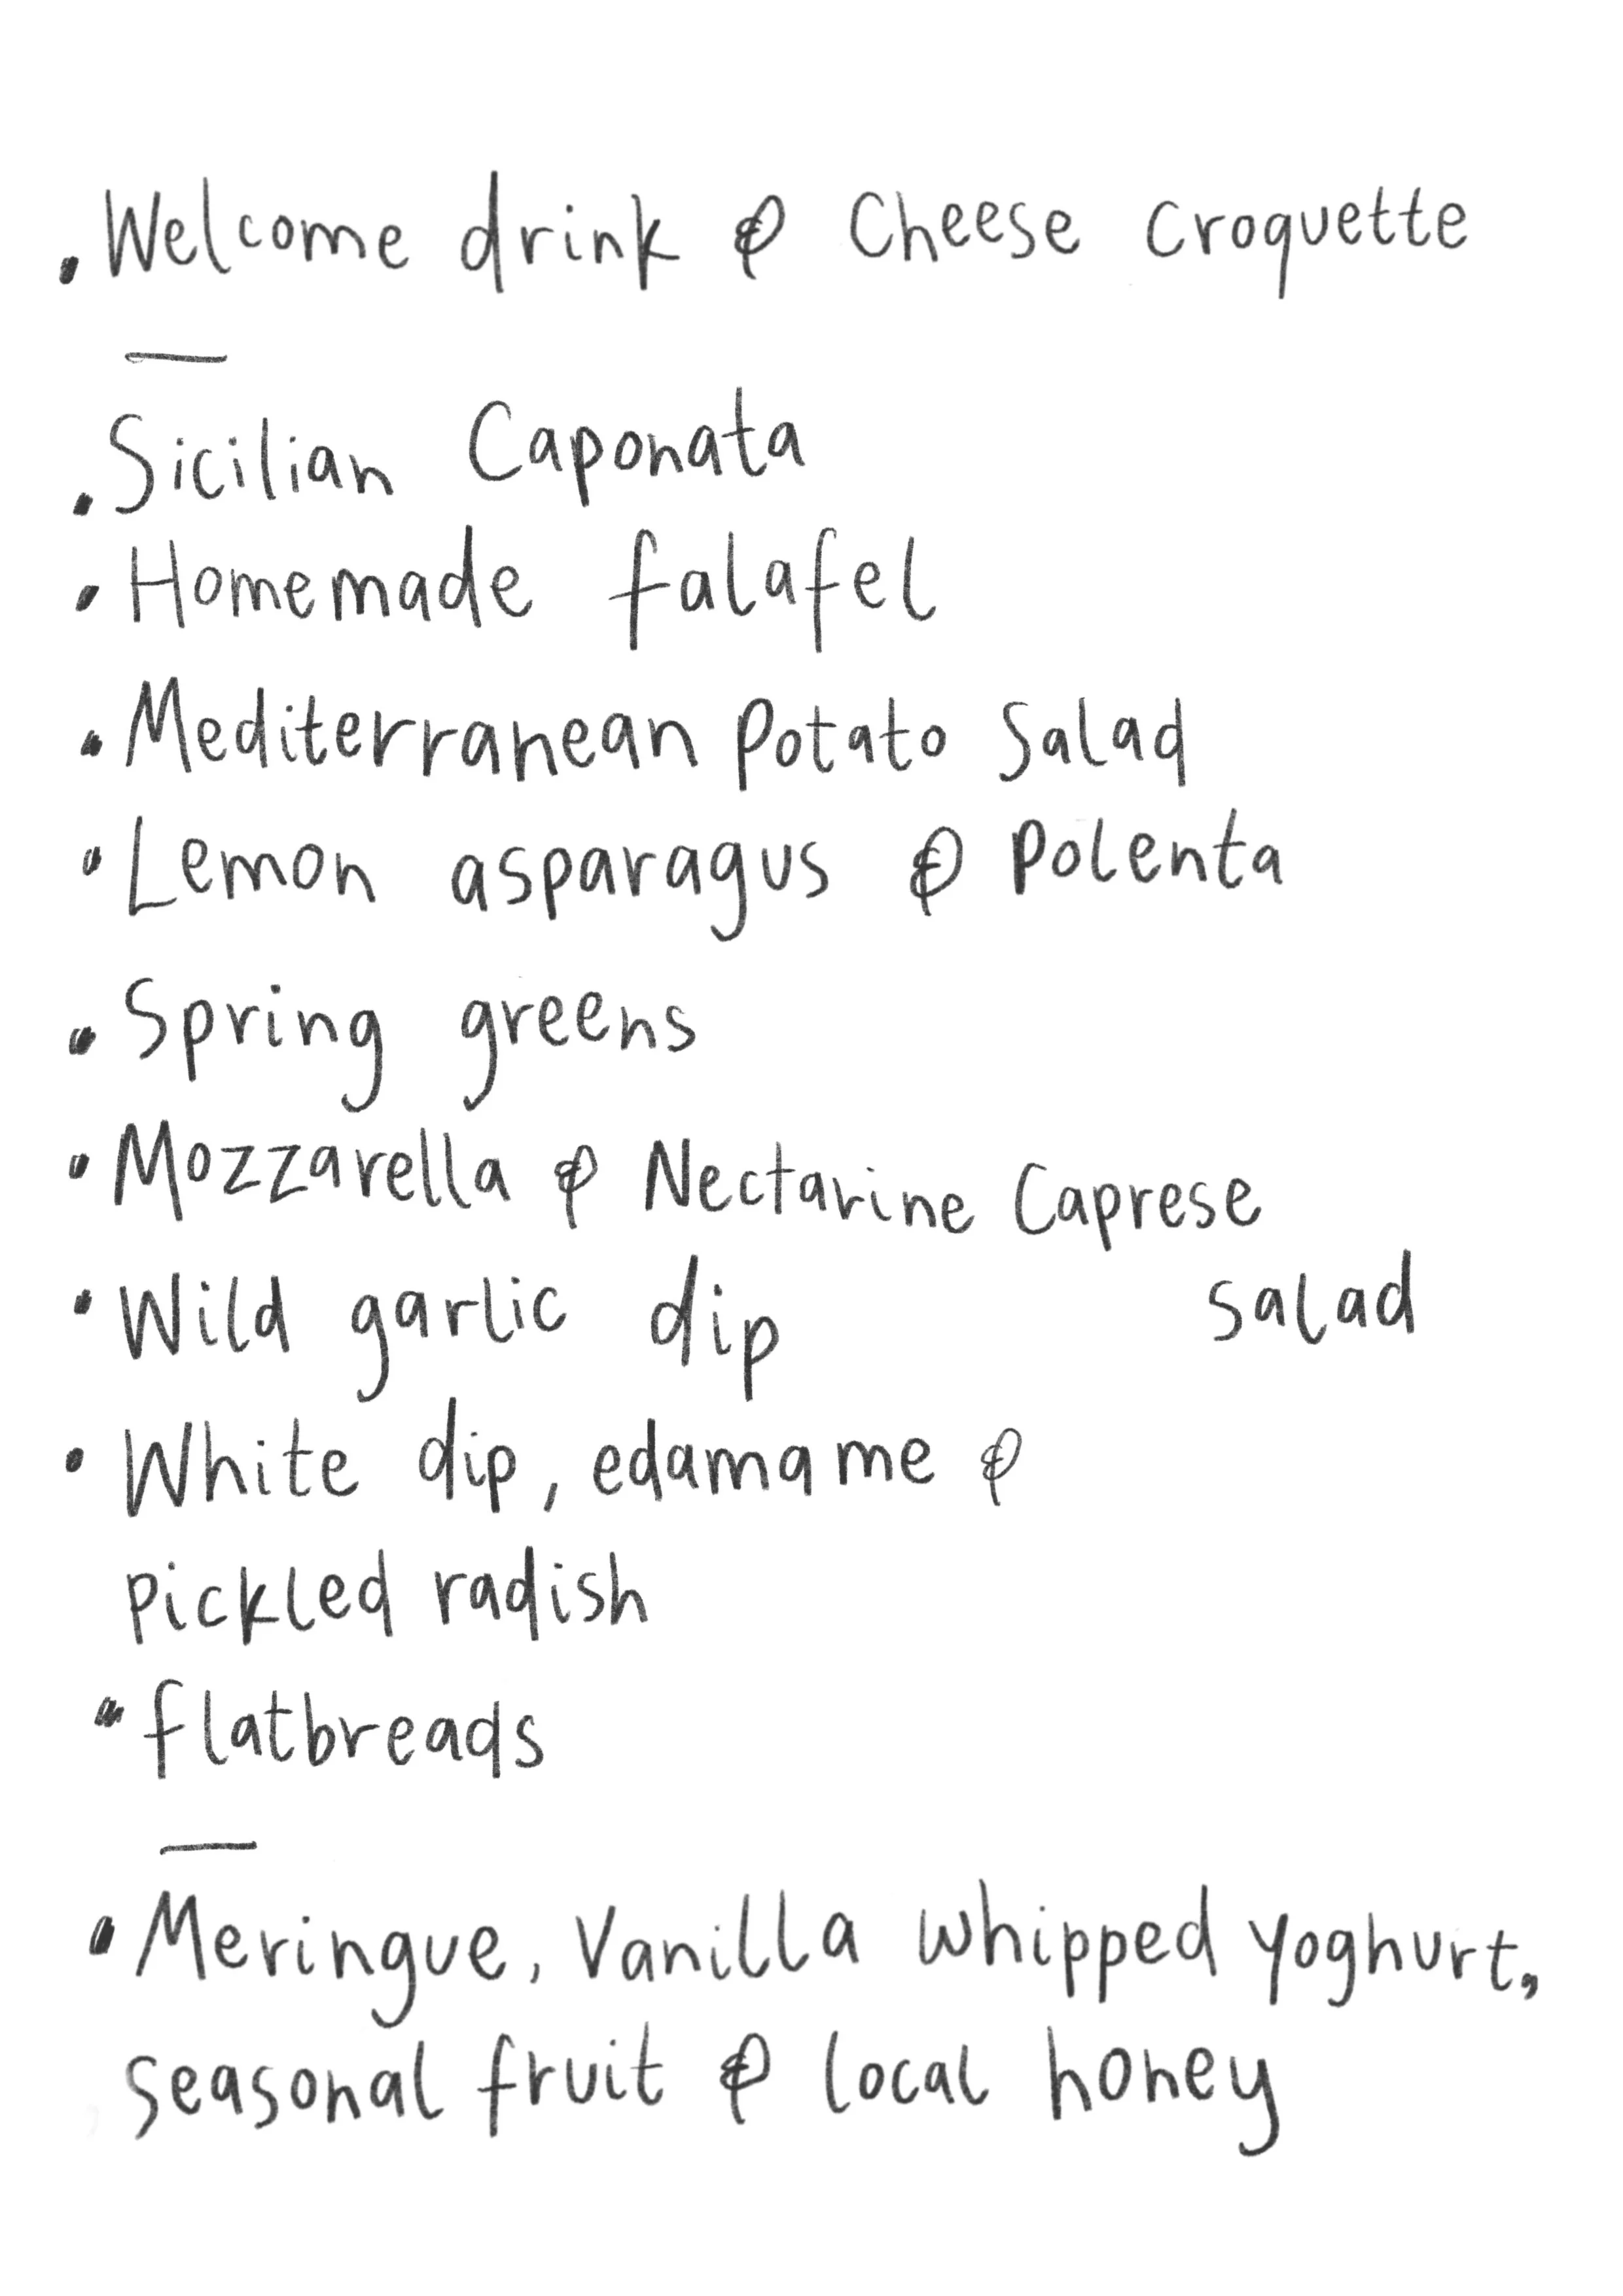 • Welcome drink & Cheese croquette
—
• Sicilian Caponata
• Homemade falafel
• Mediterranean potato salad
• Lemon asparagus & polenta
• Spring greens
• Mozzarella & Nectarine Caprese
salad
• Wild garlic dip
• White dip, edamame &
pickled radish
• flatbreads
—
• Meringue, Vanilla whipped yoghurt,
seasonal fruit & local honey